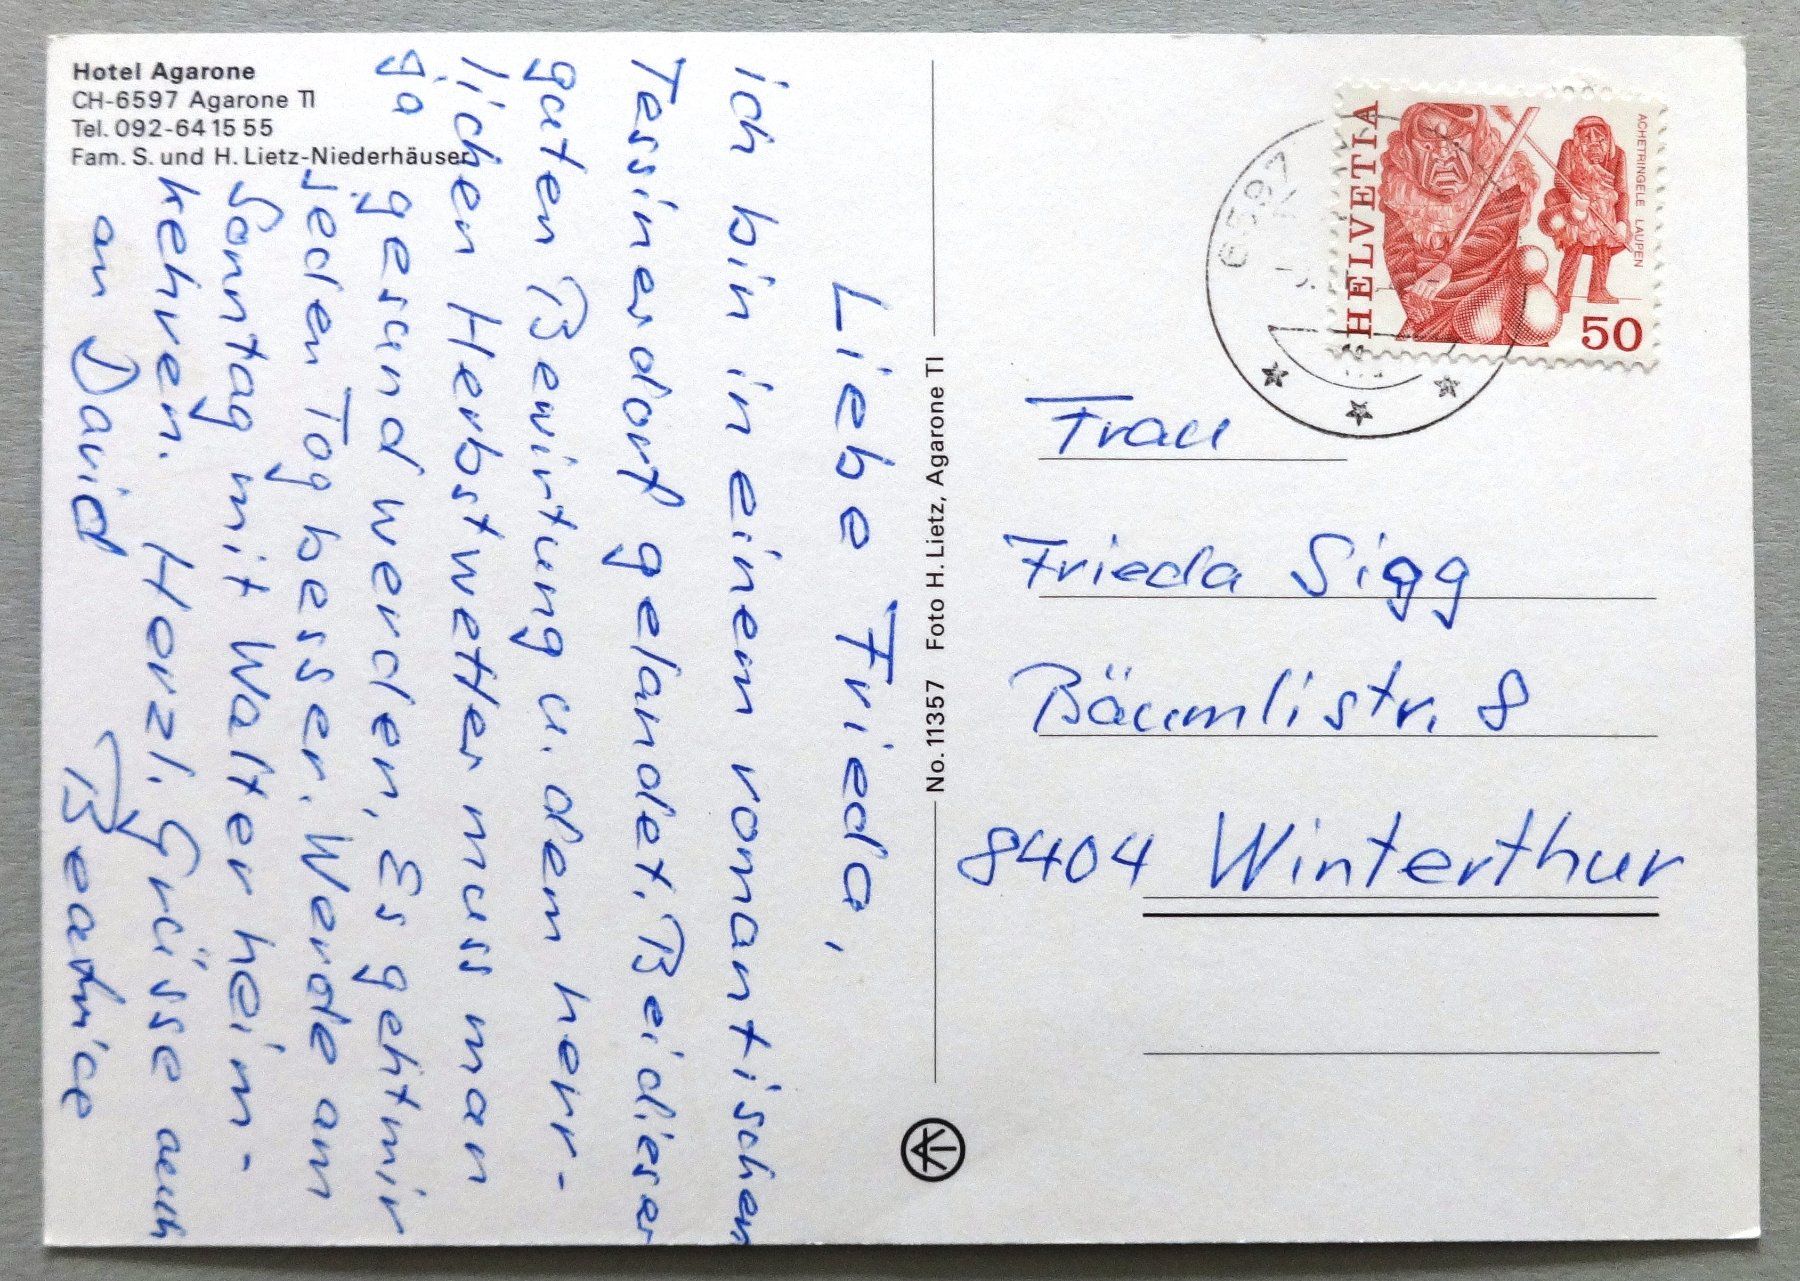 Hotel Agarone
CH-6597 Agarone TI
Tel. 092-64 15 55
Fam. S. und H. Lietz-Niederhäuser
Liebe Frieda,
ich bin in einem romantischen
Tessinerdorf gelandet. Bei dieser
guten Bewirtung u. dem herr-
lichen Herbstwetter muss man
ja gesund werden. Es geht mir
jeden Tag besser. Werde am
Sonntag mit Walter heim-
kehren. Herzl. Grüsse auch
an David Beatrice
No. 11357 Foto H. Lietz, Agarone TI
HELVETIA
ACHETRINGELE LAUPEN
50
6597
Frau
Frieda Sigg
Bäumlistr. 8
8404 Winterthur